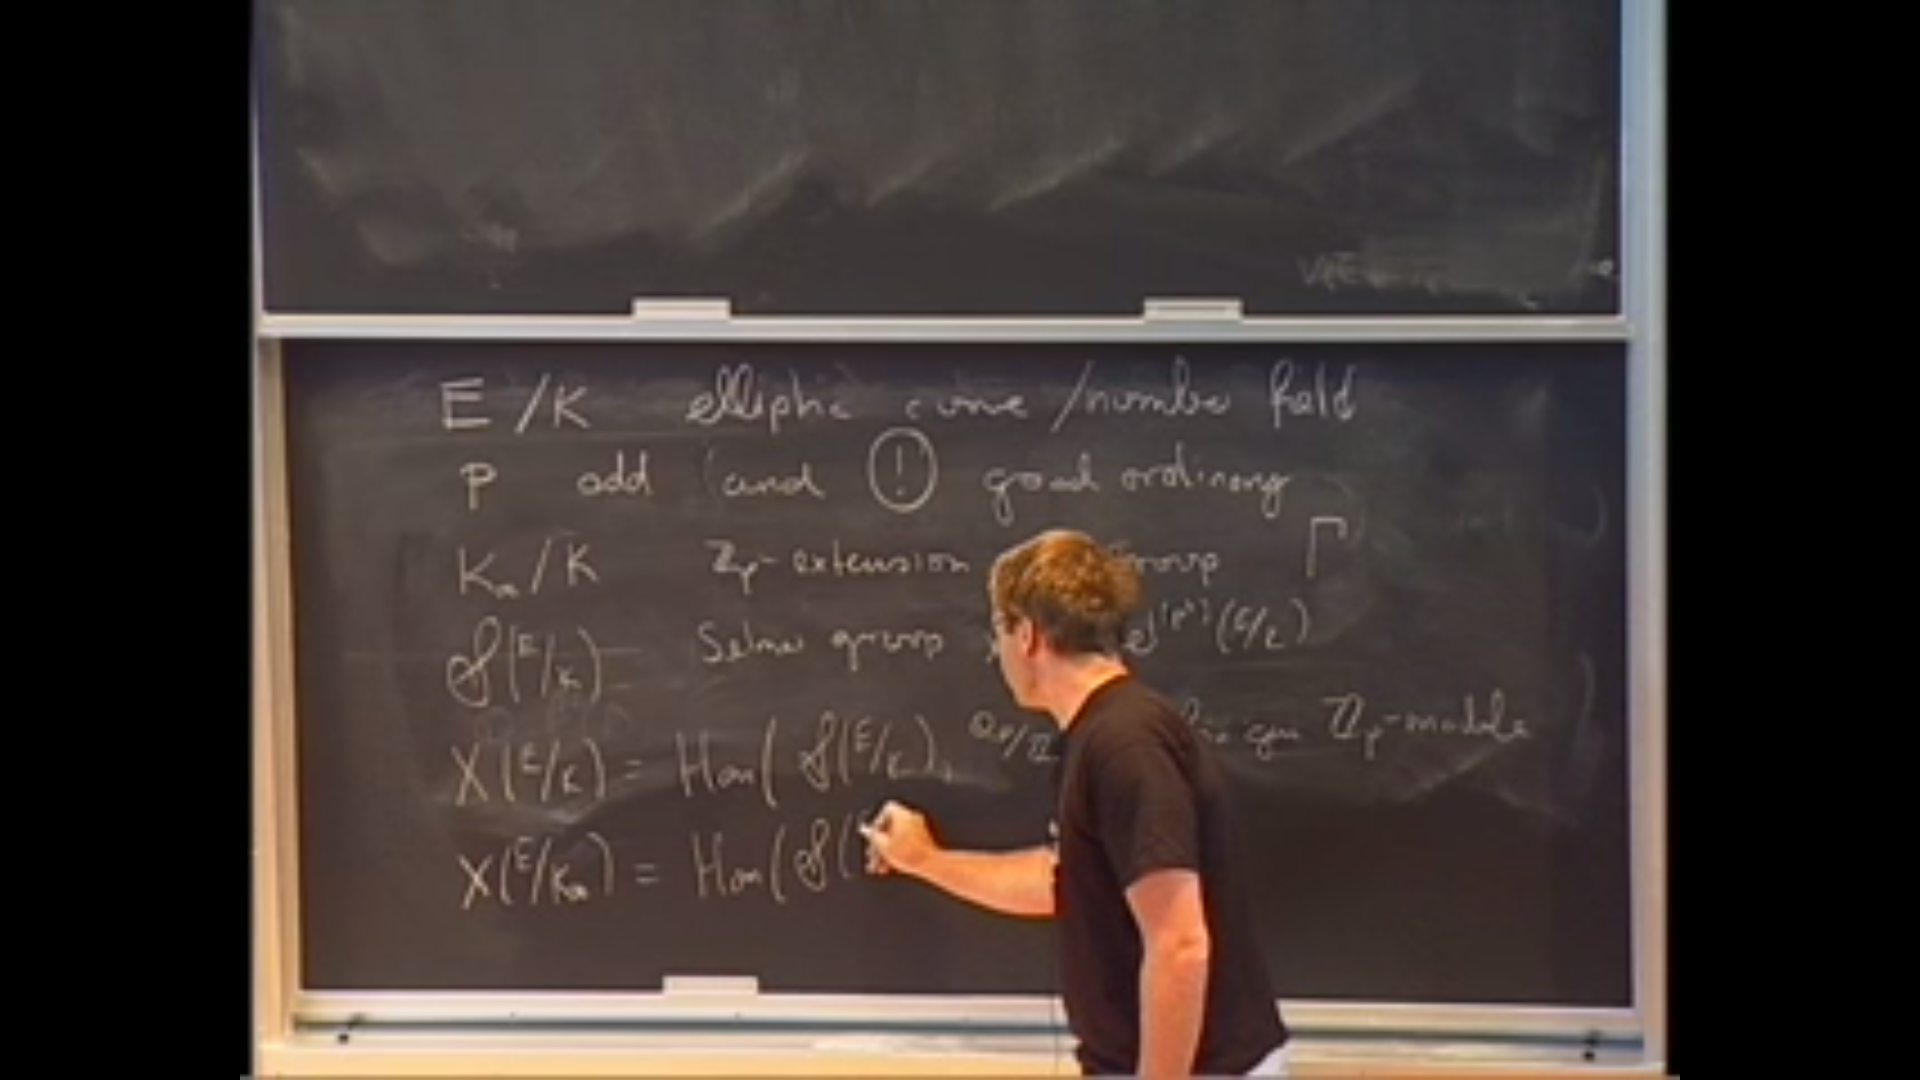 E/K elliptic curve /number field
p odd and ! good ordinary
K∞/K ℤp-extension group Γ
𝒮(E/K) = Selmer group (E/K)
X(E/K) = Hom( 𝒮(E/K), ℚp/ℤ ℤp-module
X(E/K∞) = Hom( 𝒮(